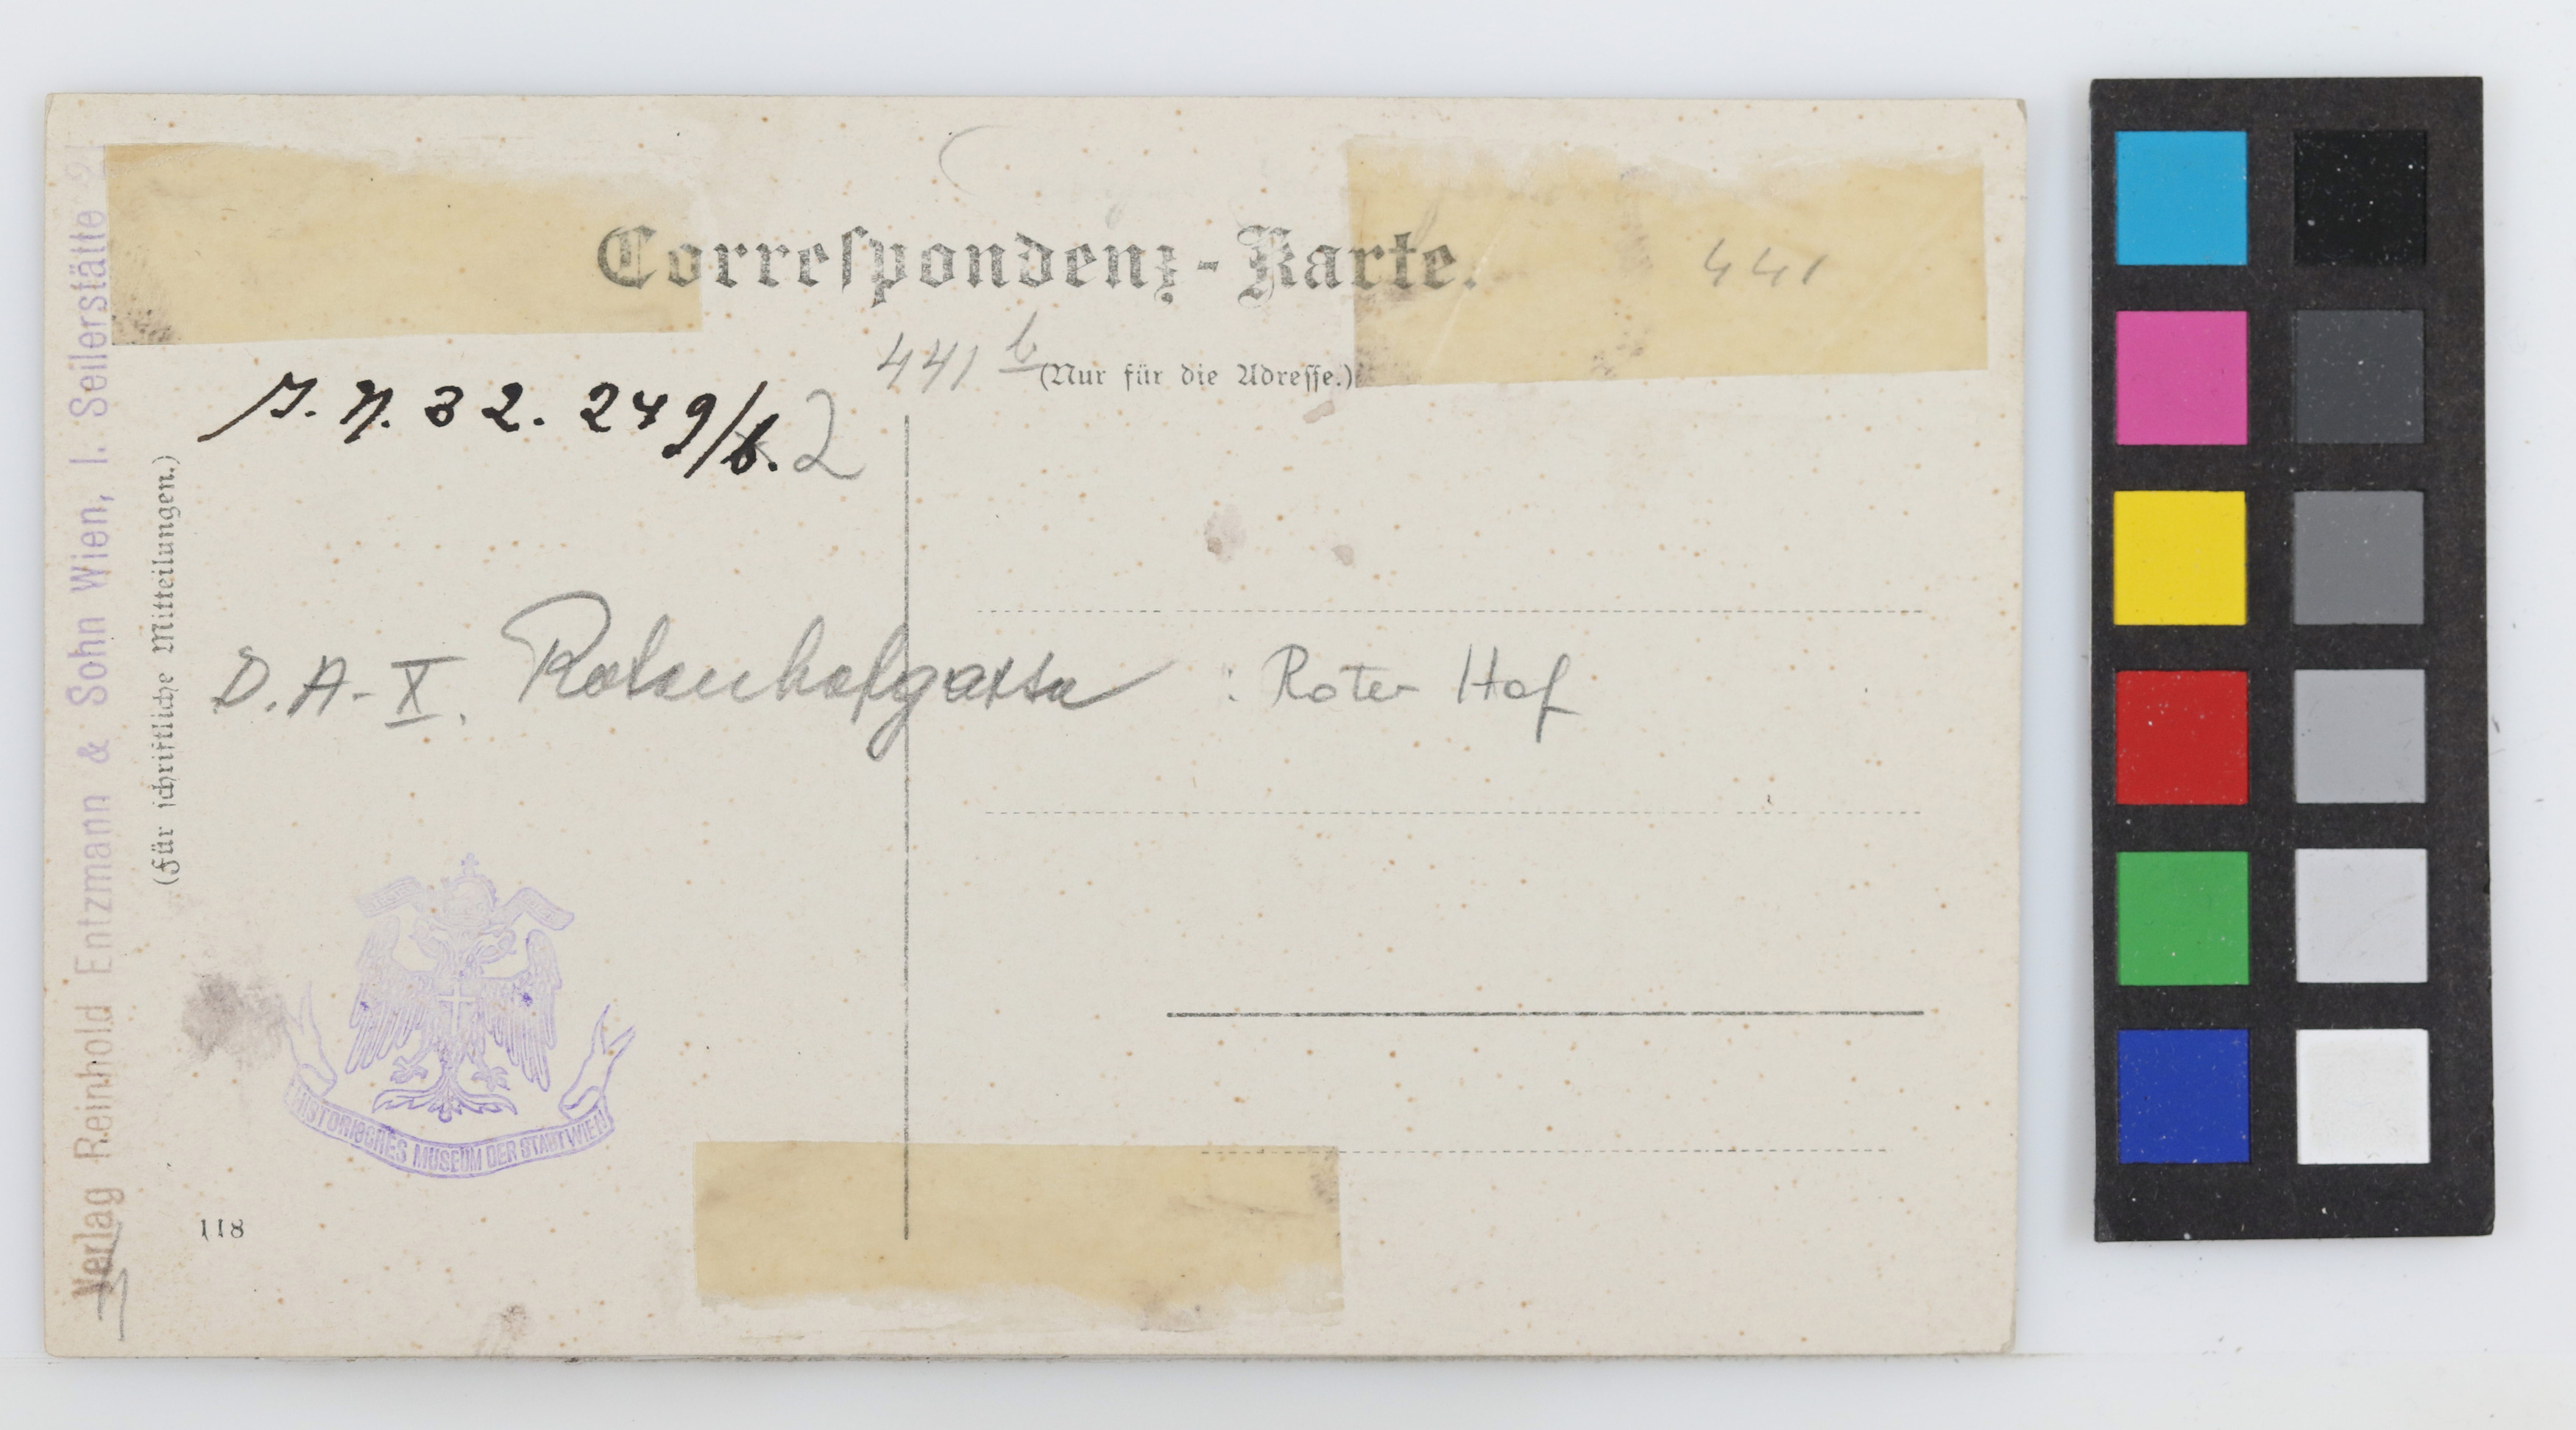 Correspondenz-Karte.
441
441 b
(Nur für die Adresse.)
J. N. 32. 249/b. 2
D. A. X. Rotenhofgasse : Roter Hof
HISTORISCHES MUSEUM DER STADT WIEN
118
(Für schriftliche Mitteilungen.)
Verlag Reinhold Entzmann & Sohn Wien, I. Seilerstätte 21